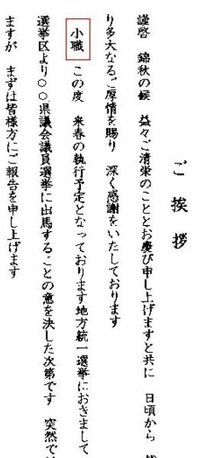 ご挨拶
謹啓 錦秋の候 益々ご清栄のこととお慶び申し上げますと共に 日頃から
り多大なるご厚情を賜り 深く感謝をいたしております
小職 この度 来春の執行予定となっております地方統一選挙におきまして
選挙区より○○県議会議員選挙に出馬することの意を決した次第です 突然で
ますが まずは皆様方にご報告を申し上げます